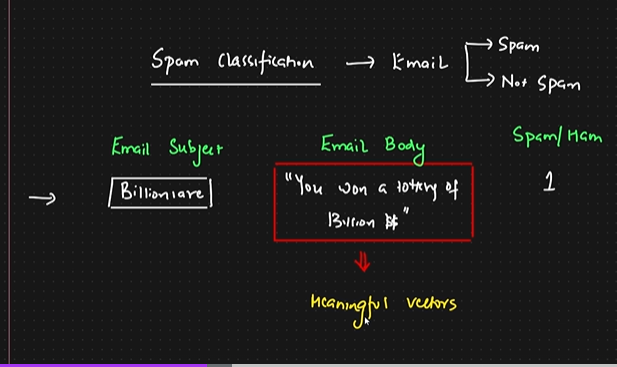 Spam Classification → Email → Spam
→ Not Spam
Email Subject Email Body Spam/Ham
→ Billionare "You won a lottery of 1
Billion $"
Meaningful vectors